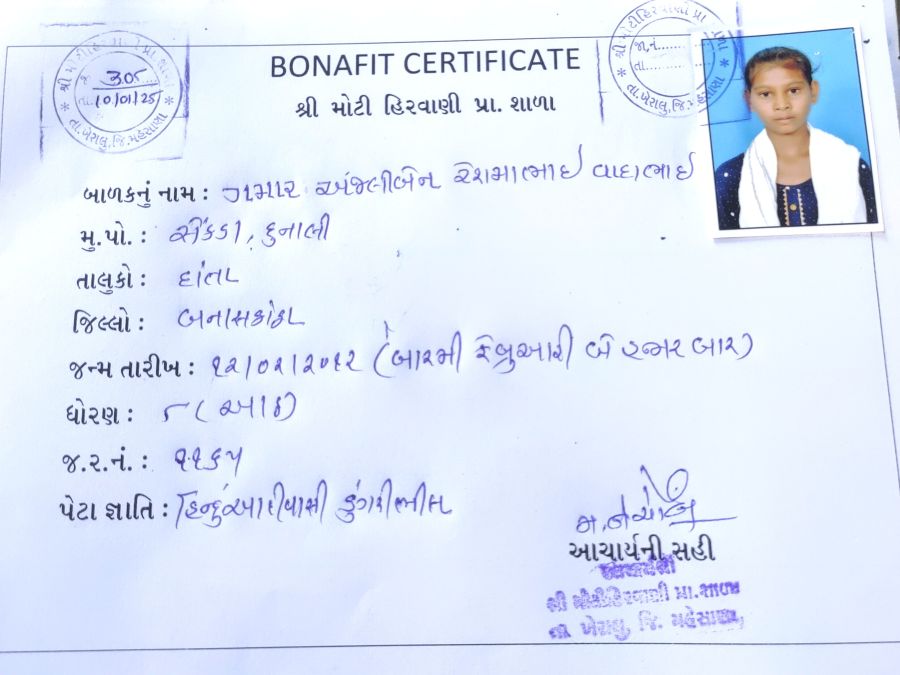 BONAFIT CERTIFICATE
શ્રી મોટી હિરવાણી પ્રા. શાળા
305
તા. 10/01/25
તા. ખેરાલુ, જિ. મહેસાણા
જા.નં.......
તા.........
બાળકનું નામ : ગમાર અંજલીબેન રેશમાભાઈ વાઘાભાઈ
મુ.પો. : સેંકડા, કુનાલી
તાલુકો : દાંતા
જિલ્લો : બનાસકાંઠા
જન્મ તારીખ : ૧૨/૦૨/૨૦૧૨ (બારમી ફેબ્રુઆરી બે હજાર બાર)
ધોરણ : ૮ (આઠ)
જ.ર.નં. : ૧૧૬૫
પેટા જ્ઞાતિ : હિન્દુઆદીવાસી ડુંગરીભીલ
આચાર્યની સહી
આચાર્યશ્રી
શ્રી મોટીહિરવાણી પ્રા.શાળા
તા. ખેરાલુ, જિ. મહેસાણા,